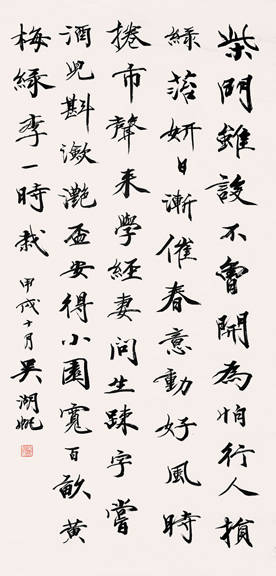 柴門雖設不曾開為怕行人損
綠苔妍日漸催春意動好風時
捲市聲來學經妻問生踈字嘗
酒兒斟瀲灩盃安得小園寬百畝黃
梅綠李一時栽 甲戌十月 吳湖帆